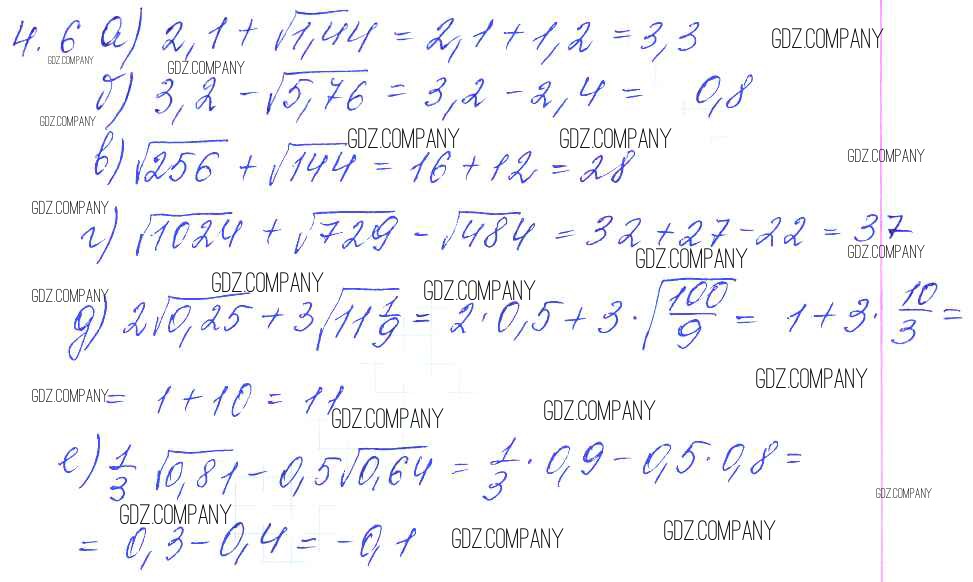 4.6 а) 2,1 + √1,44 = 2,1 + 1,2 = 3,3 GDZ.COMPANY
GDZ.COMPANY GDZ.COMPANY
б) 3,2 - √5,76 = 3,2 - 2,4 = 0,8
GDZ.COMPANY GDZ.COMPANY GDZ.COMPANY
в) √256 + √144 = 16 + 12 = 28 GDZ.COMPANY
GDZ.COMPANY
г) √1024 + √729 - √484 = 32 + 27 - 22 = 37
GDZ.COMPANY GDZ.COMPANY
GDZ.COMPANY GDZ.COMPANY GDZ.COMPANY
д) 2√0,25 + 3√11 1/9 = 2 · 0,5 + 3 · √100/9 = 1 + 3 · 10/3 =
GDZ.COMPANY
GDZ.COMPANY = 1 + 10 = 11
GDZ.COMPANY GDZ.COMPANY
е) 1/3 √0,81 - 0,5√0,64 = 1/3 · 0,9 - 0,5 · 0,8 =
GDZ.COMPANY
GDZ.COMPANY
= 0,3 - 0,4 = -0,1 GDZ.COMPANY GDZ.COMPANY